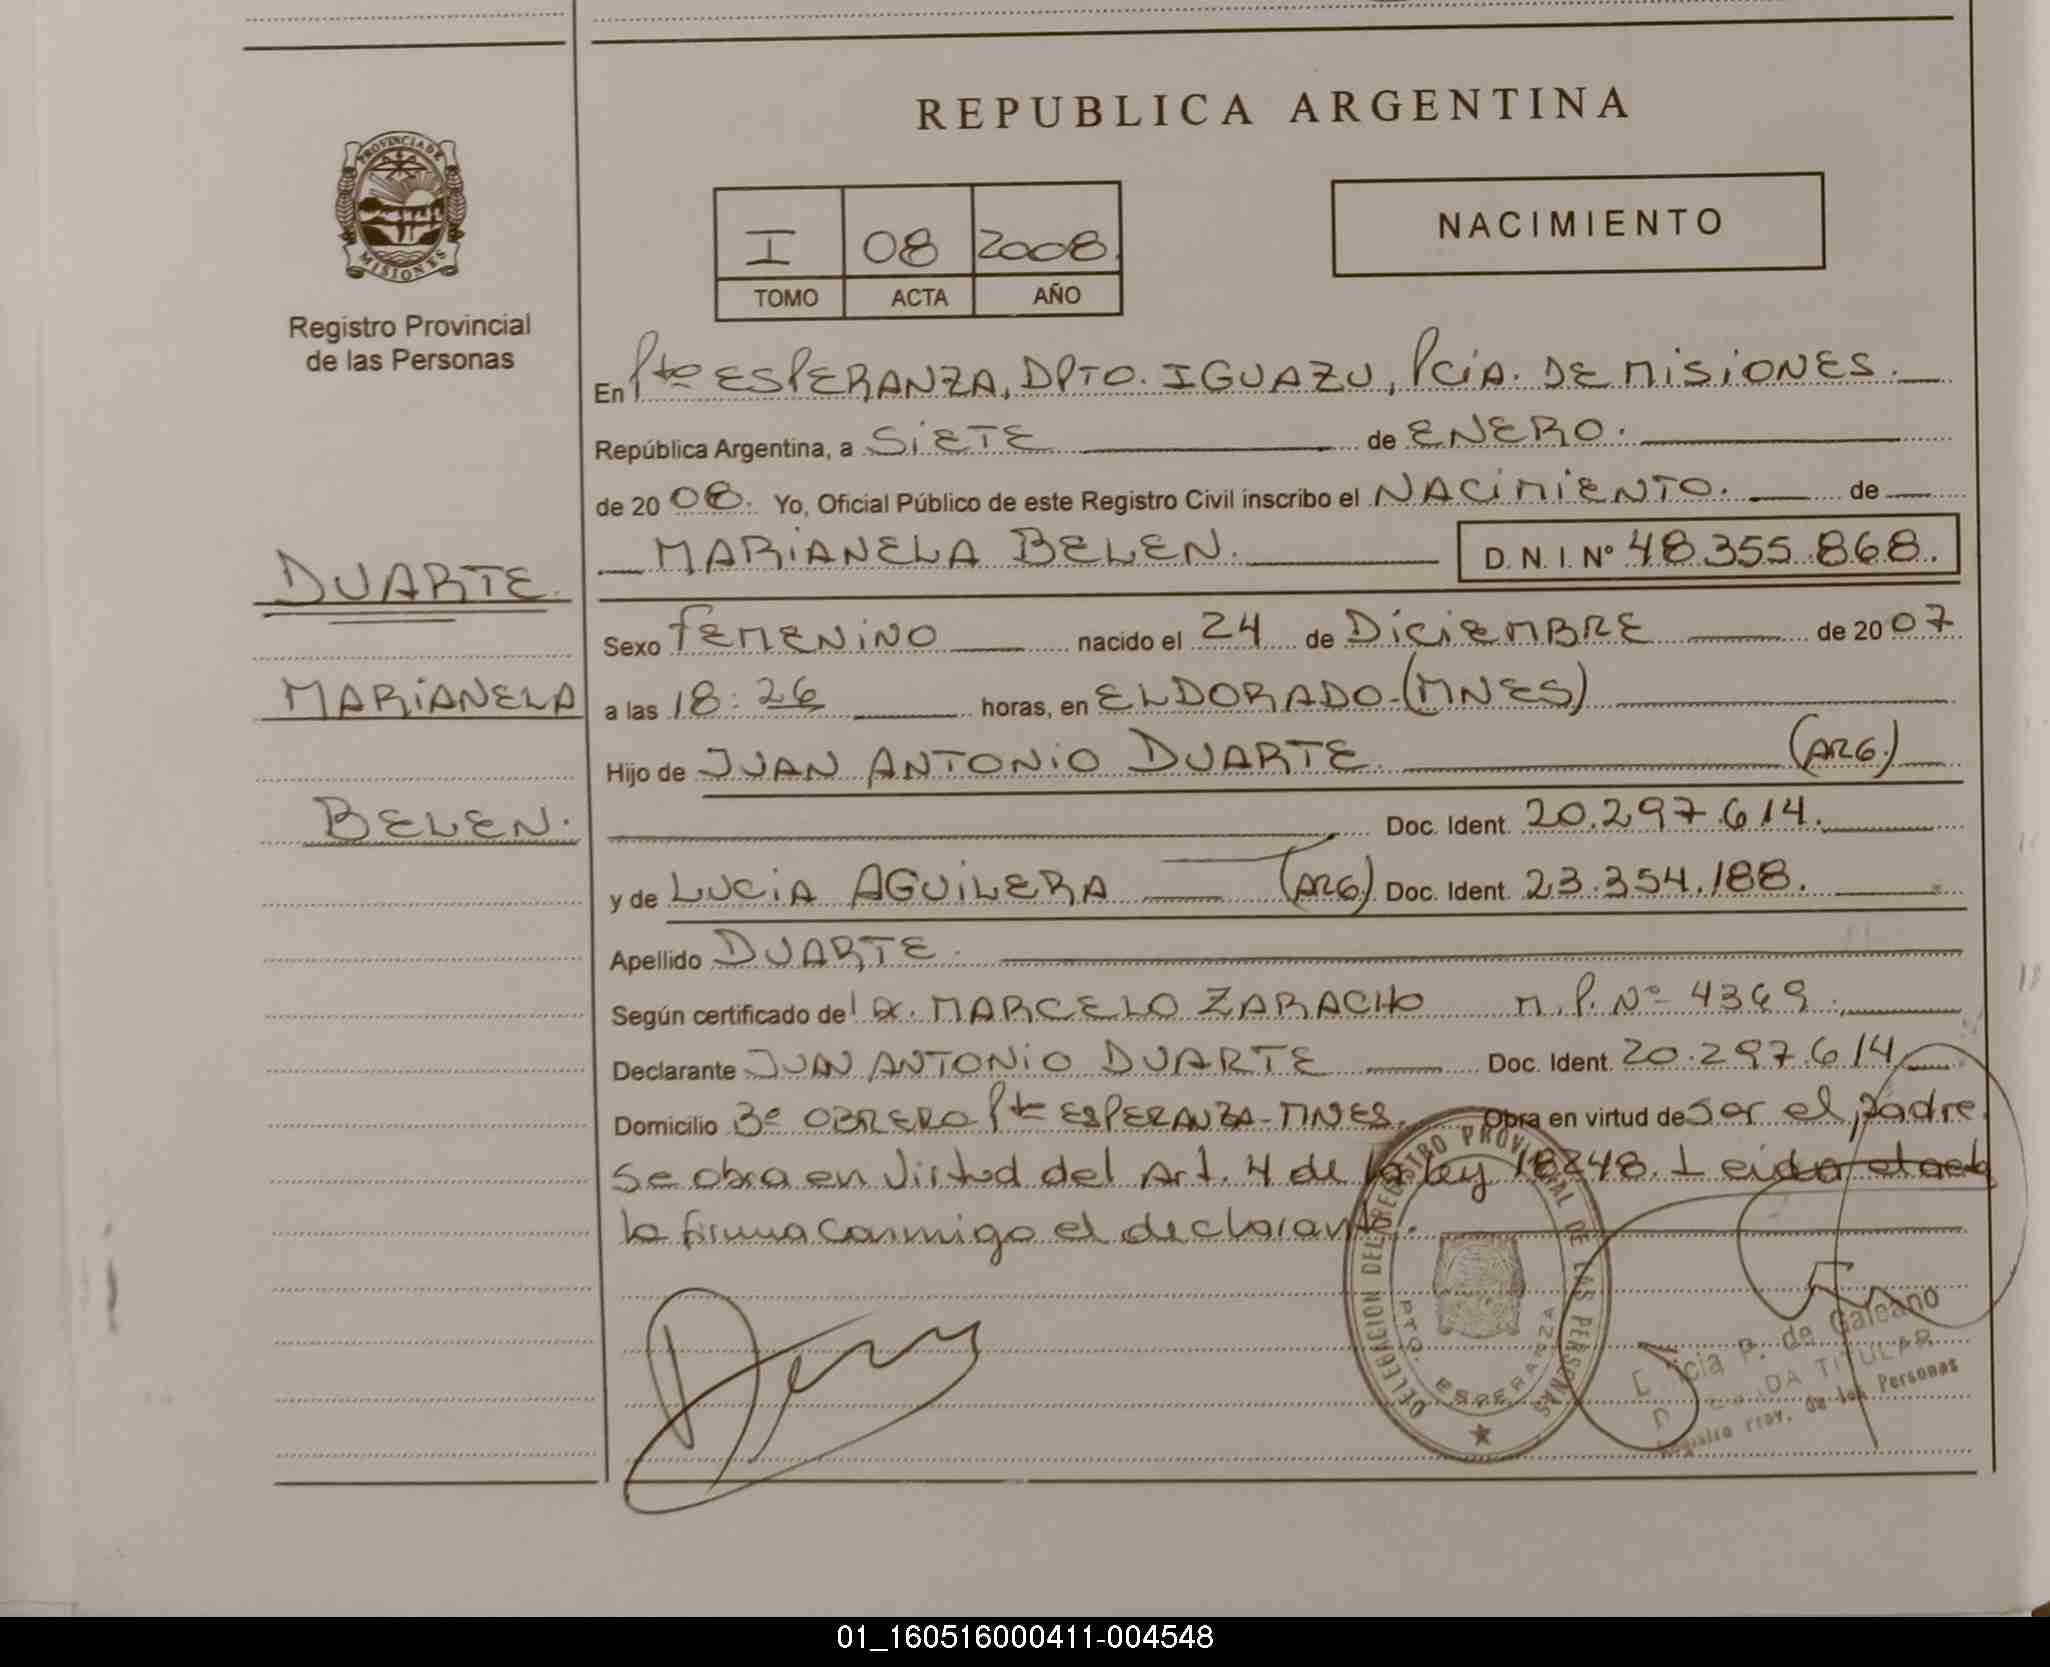 REPUBLICA ARGENTINA
PROVINCIA DE
MISIONES
Registro Provincial
de las Personas
I 08 2008.
TOMO ACTA AÑO
NACIMIENTO
En Pto ESPERANZA, DPTO. IGUAZU, PCIA. DE MISIONES.
República Argentina, a SIETE de ENERO.
de 20 08. Yo, Oficial Público de este Registro Civil inscribo el NACIMIENTO. de
MARIANELA BELEN. D.N.I. Nº 48.355.868.
DUARTE.
MARIANELA
BELEN.
Sexo FEMENINO nacido el 24 de DICIEMBRE de 20 07
a las 18:26 horas, en ELDORADO-(MNES)
Hijo de JUAN ANTONIO DUARTE. (ARG.)
Doc. Ident. 20.297.614.
y de LUCIA AGUILERA (ARG) Doc. Ident. 23.354.188.
Apellido DUARTE.
Según certificado del Dr. MARCELO ZARACHO M.P. Nº 4369.
Declarante JUAN ANTONIO DUARTE Doc. Ident. 20.297.614
Domicilio Bº OBRERO Pto ESPERANZA-MNES. Obra en virtud de Ser el padre.
Se obra en virtud del Art. 4 de la ley 18248. Leida el acta
la firma conmigo el declarante.
DELEGACION DEL REGISTRO PROVINCIAL DE LAS PERSONAS
PTO. ESPERANZA
P. de Galeano
TITULAR
Prov. de las Personas
01_160516000411-004548